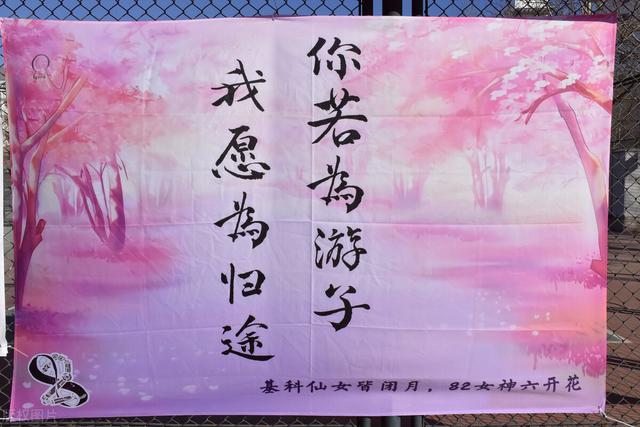 你若為游子
我愿為归途
基科仙女皆闭月，82女神六开花
版权图片